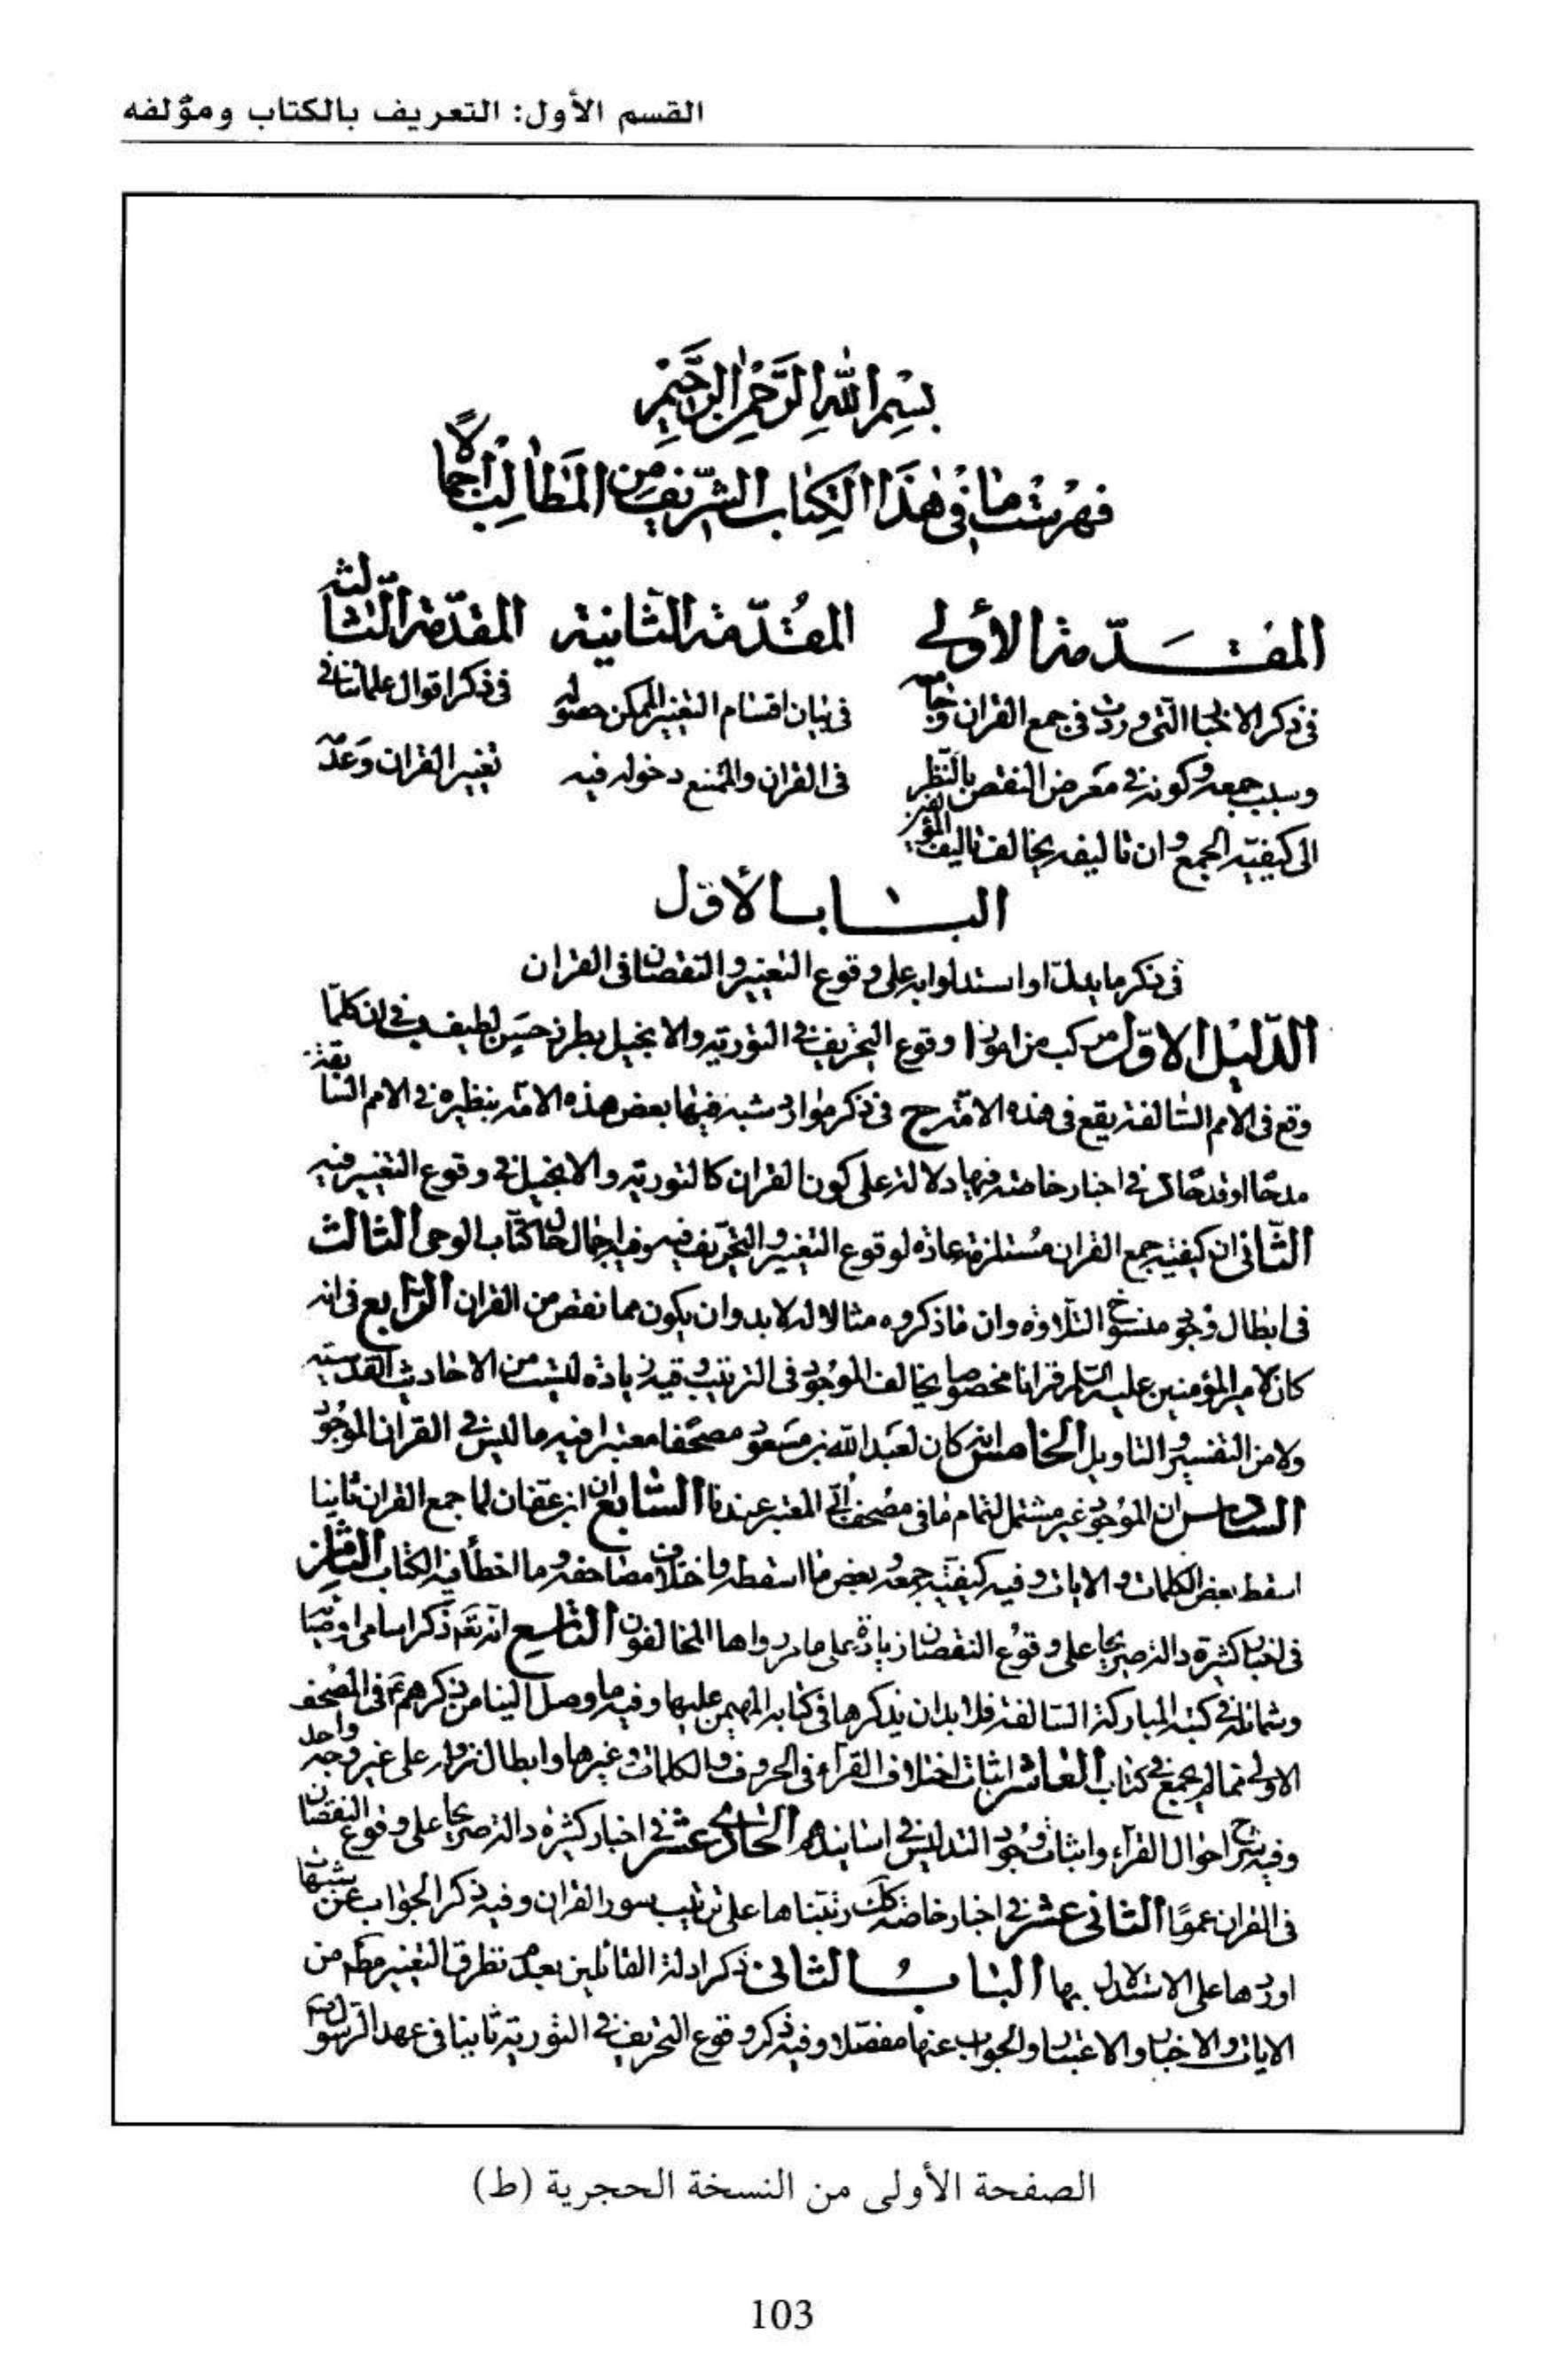 القسم الأول: التعريف بالكتاب ومؤلفه
بِسْمِ اللهِ الرَّحْمٰنِ الرَّحِيْمِ
فهرست ما في هذا الكتاب الشريف من المطالب اجمالاً
المقدمة الأولى
في ذكر الاخبار التي وردت في جمع القران وجامعه
وسبب جمعه وكونه في معرض النقص بالنظر
الى كيفية الجمع وان تاليفه يخالف تاليف
المقدمة الثانية
في بيان اقسام التغيير الممكن حصوله
في القران والممتنع دخوله فيه
المقدمة الثالثة
في ذكر اقوال علمائنا في
تغيير القران وعدمه
الباب الأول
في ذكر ما يدل او استدلوا به على وقوع التغيير والنقصان في القران
الدليل الاول مركب من امور ا وقوع التحريف في التورية والانجيل بطرز حسن لطيف ب في ان كلما
وقع في الامم السالفة يقع في هذه الامة ج في ذكر موارد شبه فيها بعض هذه الامة بنظيره في الامم السابقة
مدحا او قدحا د في اخبار خاصة فيها دلالة على كون القران كالتورية والانجيل في وقوع التغيير فيه
الثاني ان كيفية جمع القران مستلزمة عادة لوقوع التغيير والتحريف فيه وفيه اجمال حال كتاب الوحي الثالث
في ابطال وجود منسوخ التلاوة وان ما ذكروه مثالا له لا بد وان يكون مما نقص من القران الرابع في انه
كان لامير المؤمنين عليه السلام قرانا مخصوصا يخالف الموجود في الترتيب وفيه زيادة ليست من الاحاديث القدسية
ولا من التفسير والتاويل الخامس انه كان لعبد الله بن مسعود مصحفا معتبرا فيه ما ليس في القران الموجود
السادس ان الموجود غير مشتمل لتمام ما في مصحف ابي المعتبر عندنا السابع ان ابن عفان لما جمع القران ثانيا
اسقط بعض الكلمات والايات وفيه كيفية جمعه وبعض ما اسقطه واختلاف مصاحفه وما اخطأ فيه الكتاب الثامن
في اخبار كثيرة دالة صريحا على وقوع النقصان زيادة على ما مر رواها المخالفون التاسع انه تعالى ذكر اسامي اوصيائه
وشمائله في كتبه المباركة السالفة فلا بد ان يذكرها في كتابه المهيمن عليها وفيه ما وصل الينا من ذكرهم في المصحف
الاولى مما لم يجمع في كتاب العاشر اثبات اختلاف القراء في الحروف والكلمات وغيرها وابطال نزوله على غير وجه واحد
وفيه شرح احوال القراء واثبات وجود التدليس في اسانيدهم الحادي عشر في اخبار كثيرة دالة صريحا على وقوع النقصان
في القران عموما الثاني عشر في اخبار خاصة كك رتبناها على ترتيب سور القران وفيه ذكر الجواب عن شبهات
اوردها على الاستدلال بها الباب الثاني في ذكر ادلة القائلين بعدم تطرق التغيير مطلقا من
الايات والاخبار والاعتبار والجواب عنها مفصلا وفيه ذكر وقوع التحريف في التورية ثانيا في عهد الرسول
الصفحة الأولى من النسخة الحجرية (ط)
103